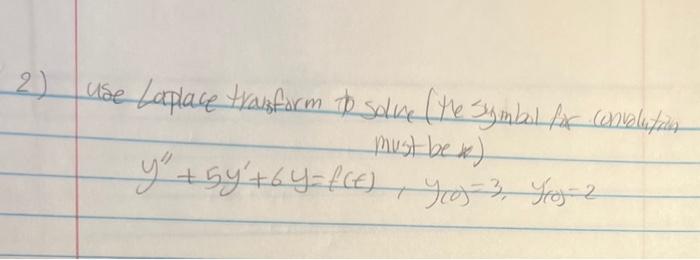 2) use Laplace transform to solve (the symbol for convolution
must be *)
y'' + 5y' + 6y = f(t) , y(0) = 3, y'(0) = 2